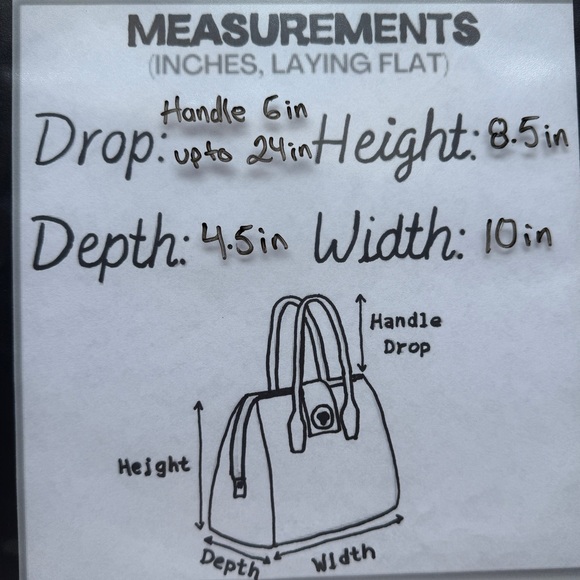 MEASUREMENTS
(INCHES, LAYING FLAT)
Drop: Handle 6in
upto 24in
Height: 8.5in
Depth: 4.5in
Width: 10in
Handle
Drop
Height
Depth
Width